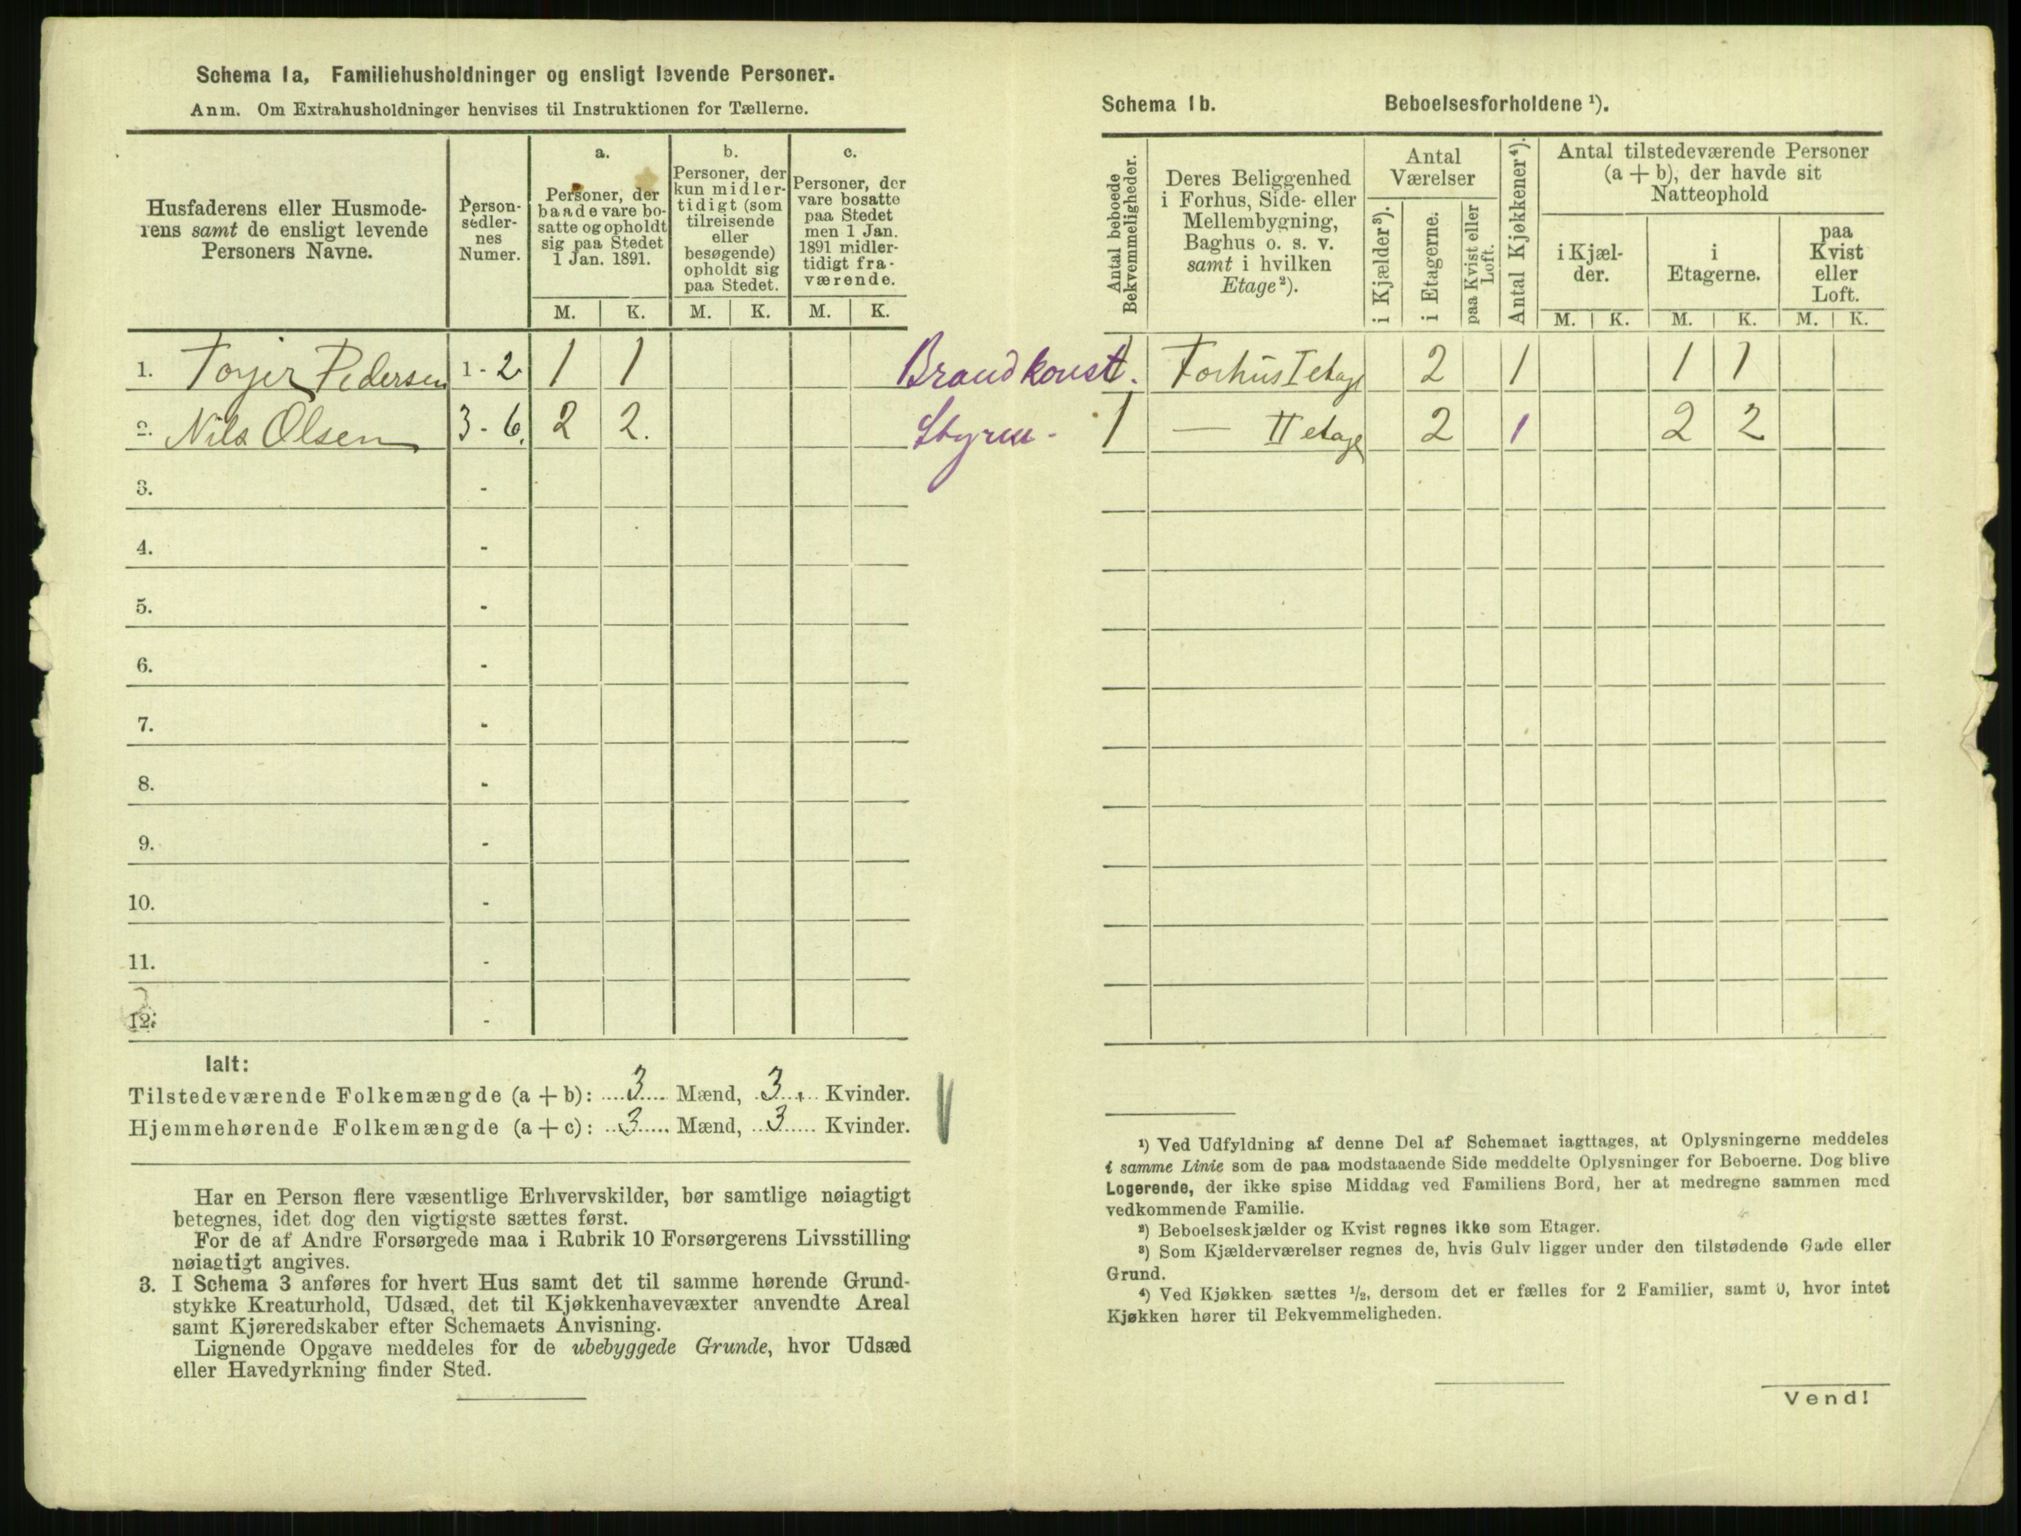 Schema 1a, Familiehusholdninger og ensligt levende Personer.
Anm. Om Extrahusholdninger henvises til Instruktionen for Tællerne.
Husfaderens eller Husmoderens samt de ensligt levende Personers Navne.
Person-sedlernes Numer.
a.
Personer, der baade vare bosatte og opholdt sig paa Stedet 1 Jan. 1891.
b.
Personer, der kun midlertidigt (som tilreisende eller besøgende) opholdt sig paa Stedet.
c.
Personer, der vare bosatte paa Stedet men 1 Jan. 1891 midlertidigt fraværende.
M. K. M. K. M. K.
1. Torjer Pedersen 1 - 2 1 1
2. Nils Olsen 3 - 6. 2 2.
3. -
4. -
5. -
6. -
7. -
8. -
9. -
10. -
11. -
12. -
Ialt:
Tilstedeværende Folkemængde (a + b): 3 Mænd, 3 Kvinder.
Hjemmehørende Folkemængde (a + c): 3 Mænd, 3 Kvinder.
Har en Person flere væsentlige Erhvervskilder, bør samtlige nøiagtigt
betegnes, idet dog den vigtigste sættes først.
For de af Andre Forsørgede maa i Rubrik 10 Forsørgerens Livsstilling
nøiagtigt angives.
3. I Schema 3 anføres for hvert Hus samt det til samme hørende Grund-
stykke Kreaturhold, Udsæd, det til Kjøkkenhavevæxter anvendte Areal
samt Kjøreredskaber efter Schemaets Anvisning.
Lignende Opgave meddeles for de ubebyggede Grunde, hvor Udsæd
eller Havedyrkning finder Sted.
Schema 1b. Beboelsesforholdene ¹).
Antal beboede Bekvemmeligheder.
Deres Beliggenhed i Forhus, Side- eller Mellembygning, Baghus o. s. v. samt i hvilken Etage²).
Antal Værelser
i Kjælder³).
i Etagerne.
paa Kvist eller Loft.
Antal Kjøkkener⁴).
Antal tilstedeværende Personer (a + b), der havde sit Natteophold
i Kjælder.
i Etagerne.
paa Kvist eller Loft.
M. K. M. K. M. K.
Brandkonst. Forhus I etage 2 1 1 1
Styrer - 1 — II etage 2 1 2 2
¹) Ved Udfyldning af denne Del af Schemaet iagttages, at Oplysningerne meddeles
i samme Linie som de paa modstaaende Side meddelte Oplysninger for Beboerne. Dog blive
Logerende, der ikke spise Middag ved Familiens Bord, her at medregne sammen med
vedkommende Familie.
²) Beboelseskjælder og Kvist regnes ikke som Etager.
³) Som Kjælderværelser regnes de, hvis Gulv ligger under den tilstødende Gade eller
Grund.
⁴) Ved Kjøkken sættes ½, dersom det er fælles for 2 Familier, samt 0, hvor intet
Kjøkken hører til Bekvemmeligheden.
Vend!